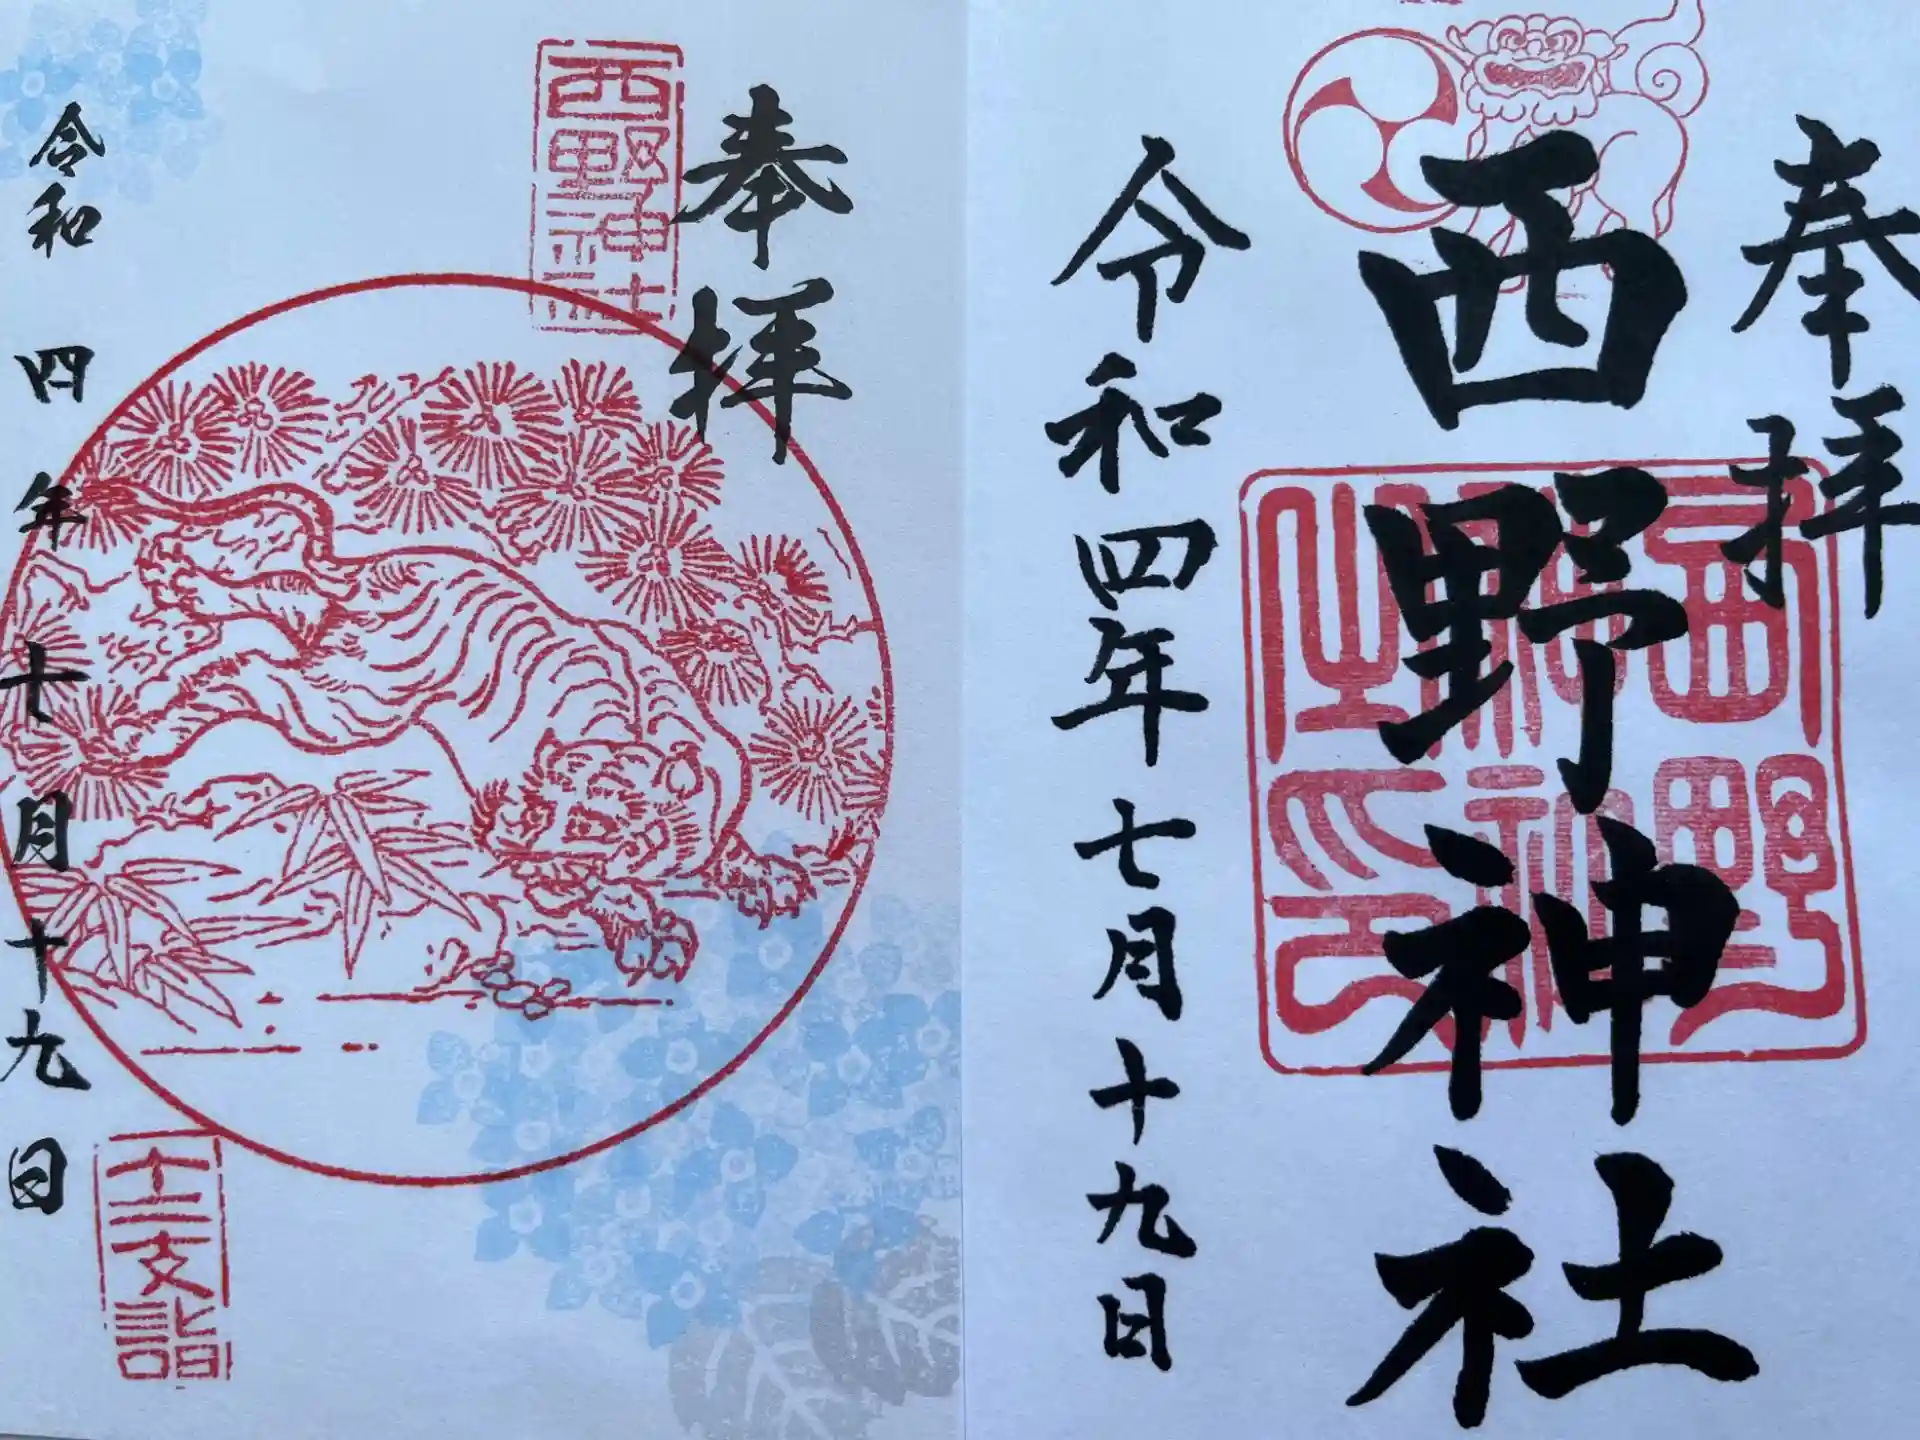 奉拝
西野神社
令和四年七月十九日
西野神社之印
奉拝
西野神社
令和四年七月十九日
十二支詣